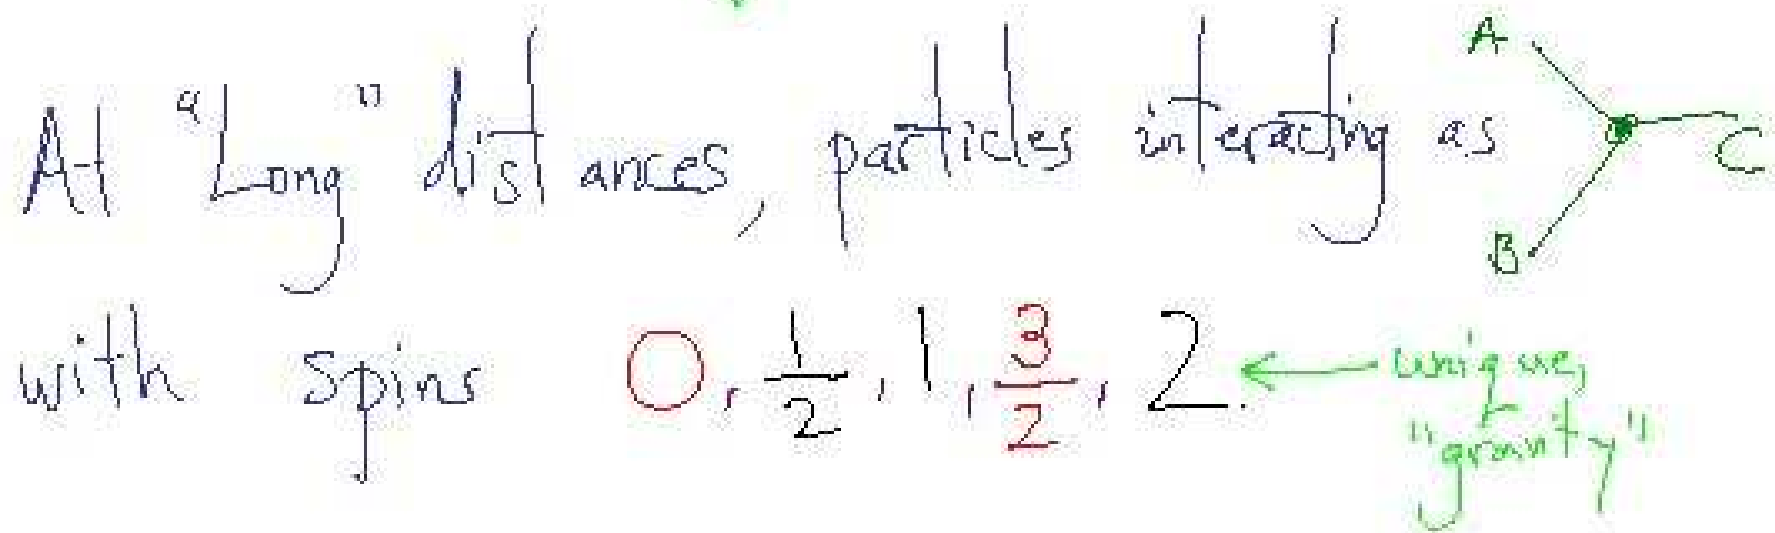 At "Long" distances, particles interacting as A B C
with spins 0, 1/2, 1, 3/2, 2. ← unique,
"gravity"